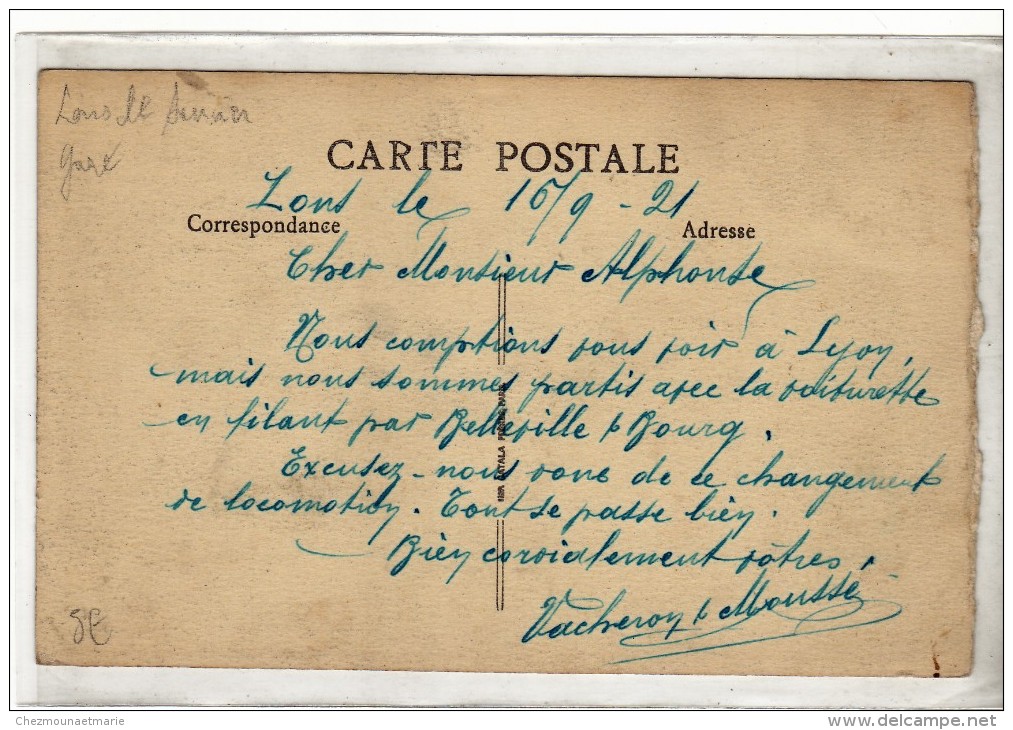 Lons le Saunier
Gare
CARTE POSTALE
Lons le 16/9 - 21
Correspondance
Adresse
Cher Monsieur Alphonse
Nous comptions vous voir à Lyon,
mais nous sommes partis avec la voiturette
en filant par Belleville & Bourg.
Excusez-nous donc de ce changement
de locomotion. Tout se passe bien.
Bien cordialement vôtres,
Vacheron & Mousse
IMP. CATALA FRERES PARIS
5€
Chezmounaetmarie
delcampe.net